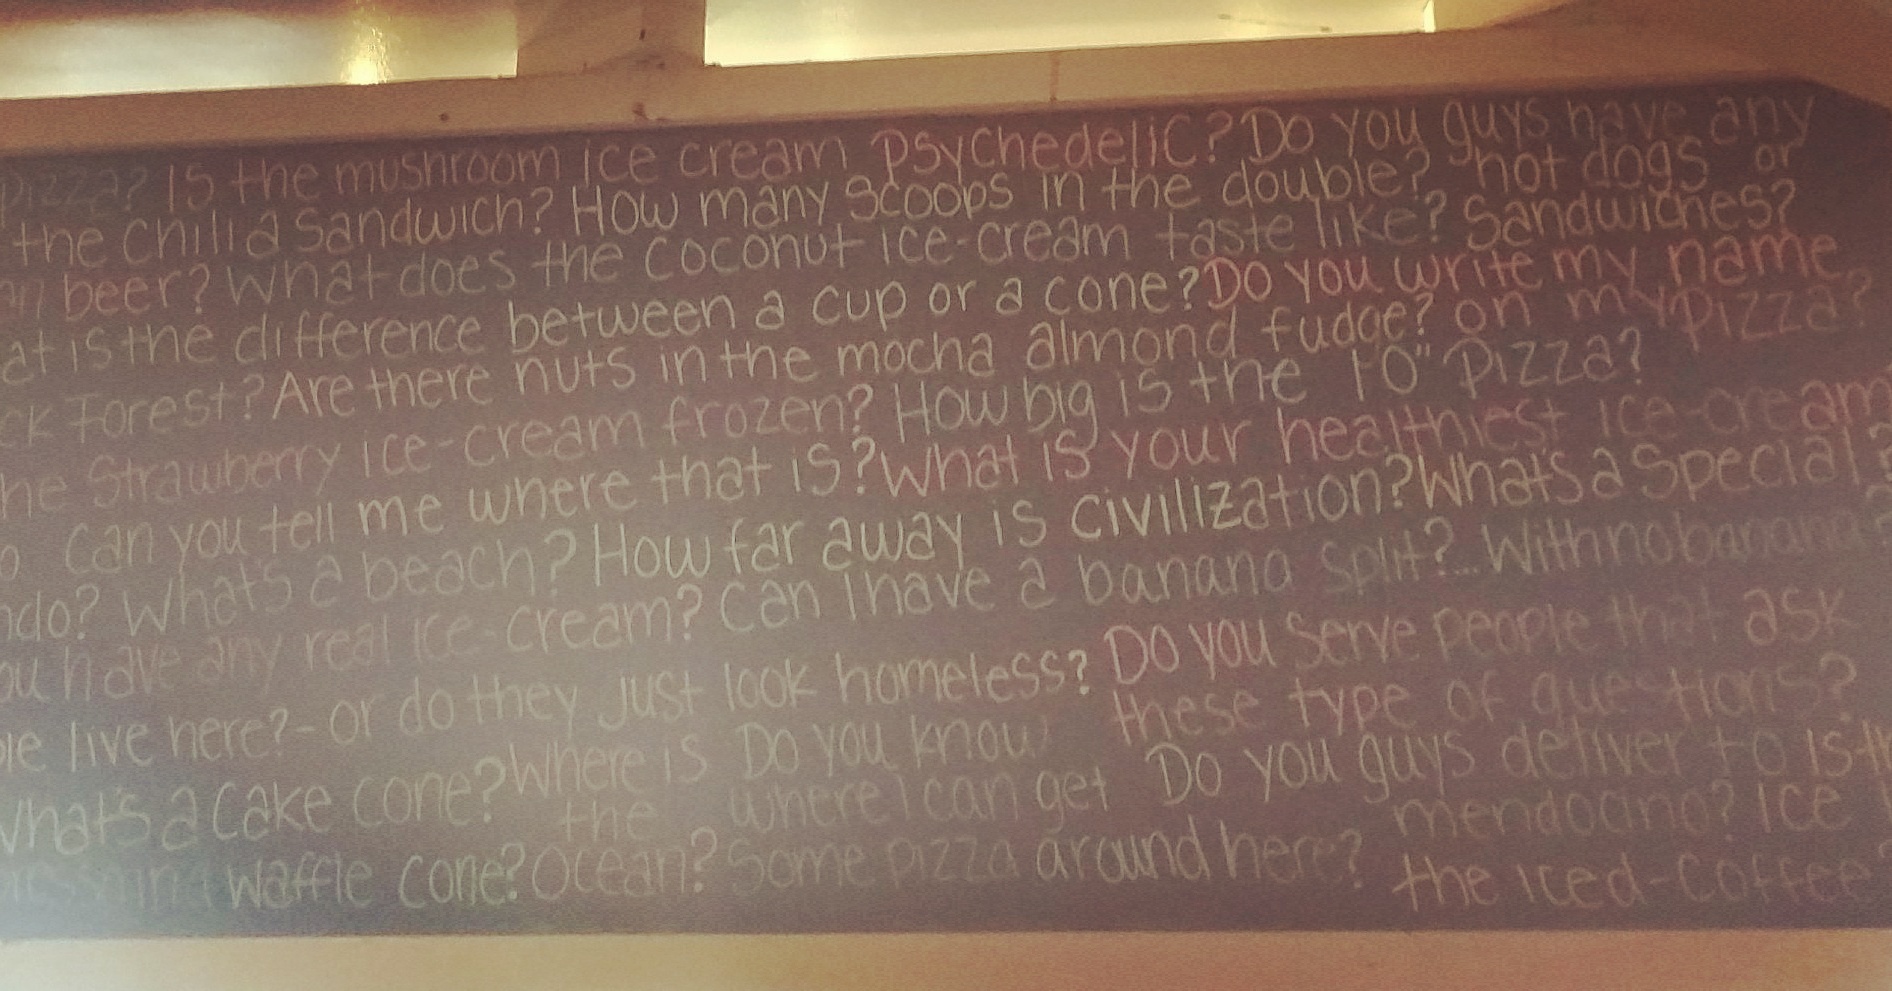 pizza? Is the mushroom ice cream psychedelic? Do you guys have any
the Chili a Sandwich? How many scoops in the double? hot dogs or
beer? What does the coconut ice-cream taste like? Sandwiches?
at is the difference between a cup or a cone? Do you write my name
ck Forest? Are there nuts in the mocha almond fudge? on my pizza?
he Strawberry ice-cream frozen? How big is the 10" pizza?
o Can you tell me where that is? What is your healthiest ice-cream
ndo? What's a beach? How far away is civilization? What's a Special?
ou have any real ice-cream? Can I have a banana split?... With no banana?
ple live here?- or do they just look homeless? Do you serve people that ask
these type of questions?
What's a Cake cone? Where is the Ocean? Do you know where I can get Some pizza around here?
Do you guys deliver to mendocino? Is th
waffle cone? Ice
the iced-coffee?